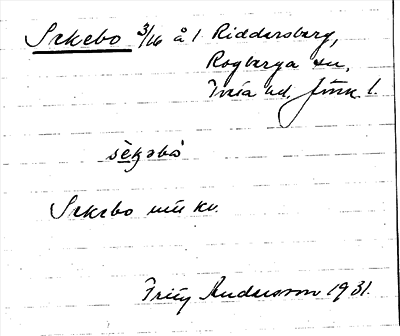 Sekebo 3/16 å 1 Riddersberg,
Rogberga sn,
Tveta hd. Jönk. l.
sèkəbo
Sekebo mü kv.
Fritz Andersson 1931.